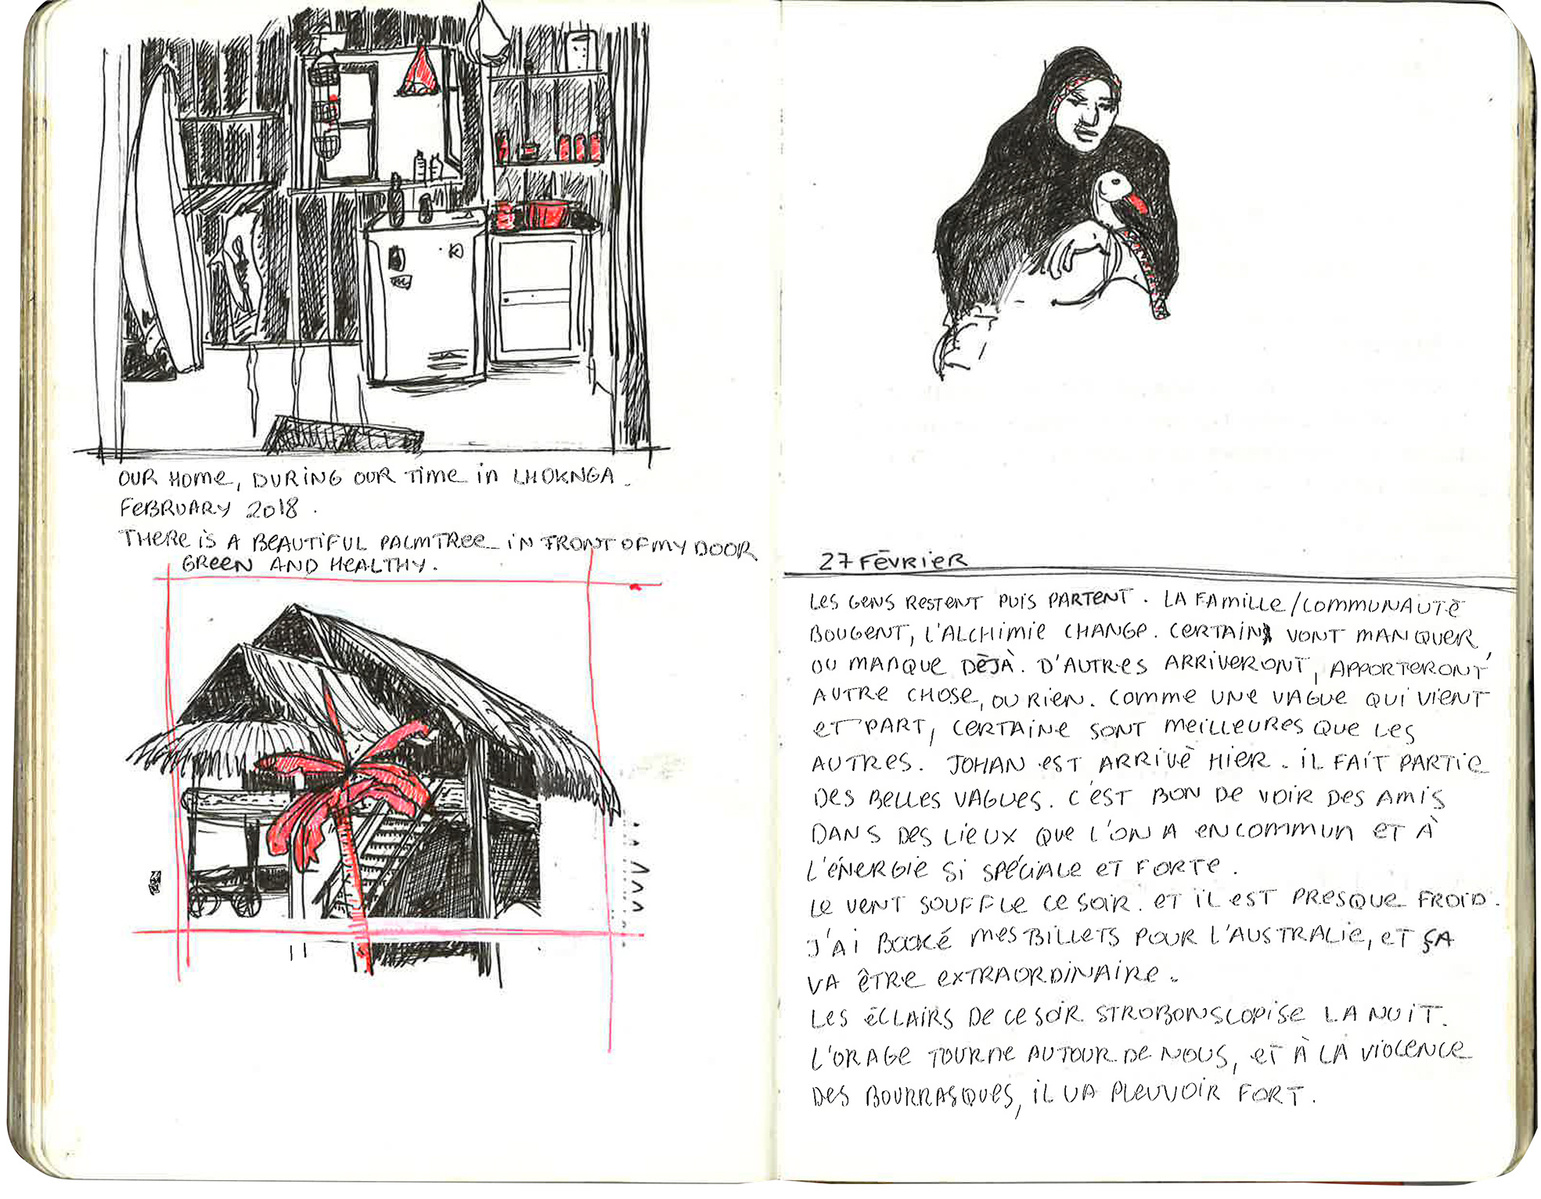 OUR HOME, DURING OUR TIME IN LHOKNGA.
FEBRUARY 2018.
THERE IS A BEAUTIFUL PALMTREE IN FRONT OF MY DOOR
GREEN AND HEALTHY.
27 FÉVRIER
LES GENS RESTENT PUIS PARTENT. LA FAMILLE/COMMUNAUTÉ
BOUGENT, L'ALCHIMIE CHANGE. CERTAINS VONT MANQUER,
OU MANQUE DÉJÀ. D'AUTRES ARRIVERONT, APPORTERONT
AUTRE CHOSE, OU RIEN. COMME UNE VAGUE QUI VIENT
ET PART, CERTAINE SONT MEILLEURES QUE LES
AUTRES. JOHAN EST ARRIVÉ HIER. IL FAIT PARTIE
DES BELLES VAGUES. C'EST BON DE VOIR DES AMIS
DANS DES LIEUX QUE L'ON A EN COMMUN ET À
L'ÉNERGIE SI SPÉCIALE ET FORTE.
LE VENT SOUFFLE CE SOIR. ET IL EST PRESQUE FROID.
J'AI BOOKÉ MES BILLETS POUR L'AUSTRALIE, ET ÇA
VA ÊTRE EXTRAORDINAIRE.
LES ÉCLAIRS DE CE SOIR STROBONSCOPISE LA NUIT.
L'ORAGE TOURNE AUTOUR DE NOUS, ET À LA VIOLENCE
DES BOURRASQUES, IL VA PLEUVOIR FORT.